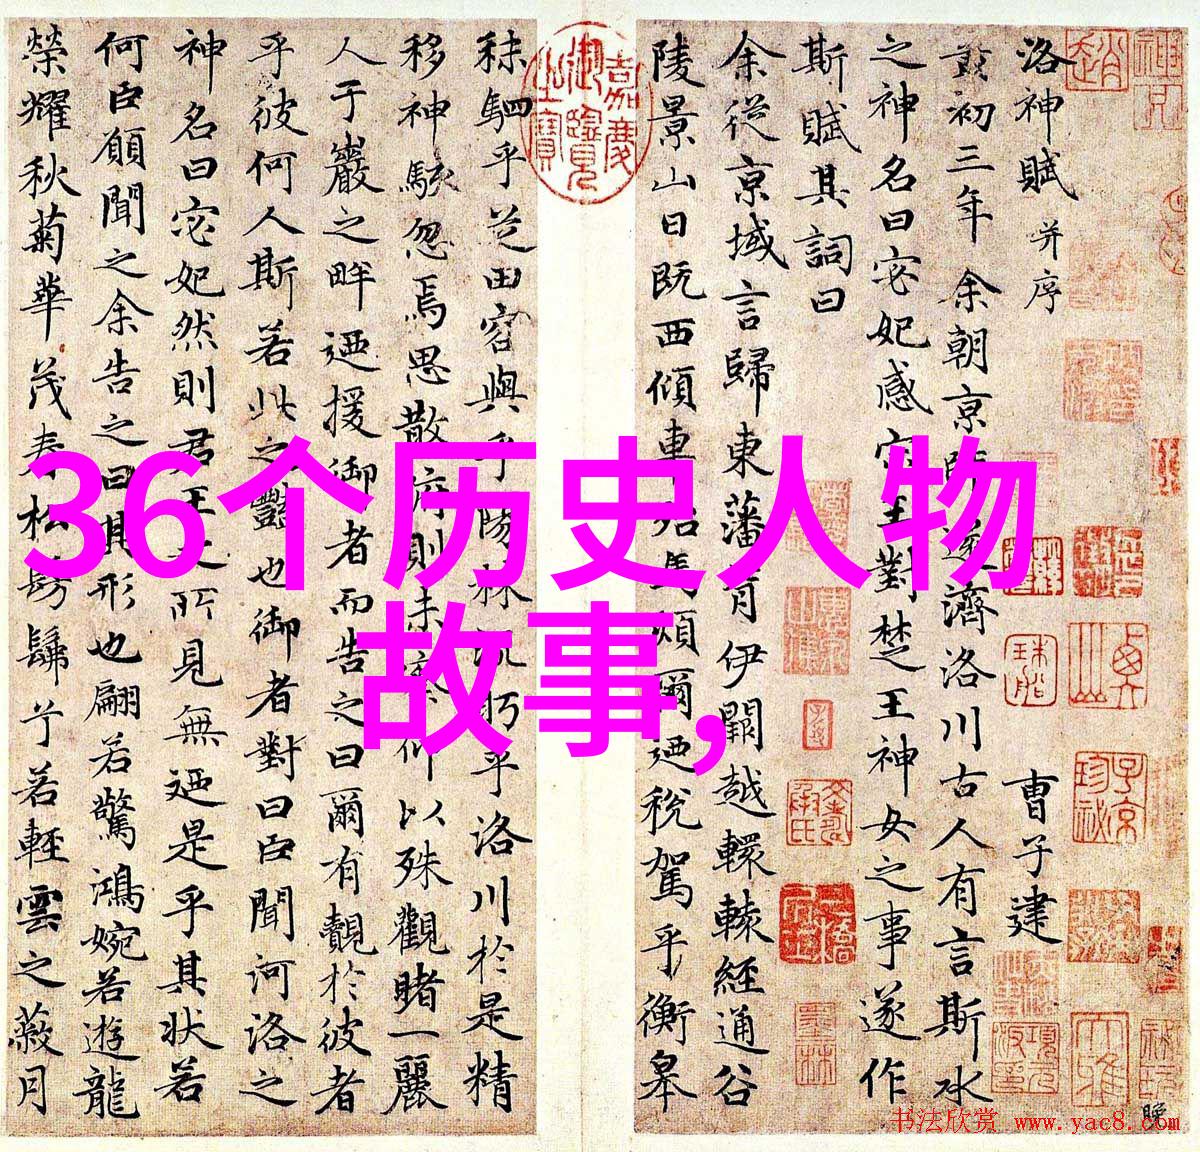 36个历史人物
故事,
洛神賦 并序 曹子建
黃初三年余朝京師還濟洛川古人有言斯水
之神名曰宓妃感宋玉對楚王神女之事遂作
斯賦其詞曰
余從京域言歸東藩背伊闕越轘轅經通谷
陵景山日既西傾車殆馬煩爾迺稅駕乎衡皋
嘉慶御覽之寶
秣駟乎芝田容與乎陽林流眄乎洛川於是精
移神駭忽焉思散俯則未察仰以殊觀睹一麗
人于巖之畔迺援御者而告之曰爾有覿於彼者
乎彼何人斯若此之豔也御者對曰臣聞河洛之
神名曰宓妃然則君王之所見無迺是乎其狀若
何臣願聞之余告之曰其形也翩若驚鴻婉若遊龍
榮耀秋菊華茂春松髣髴兮若輕雲之蔽月
书法欣赏 www.yac8.com